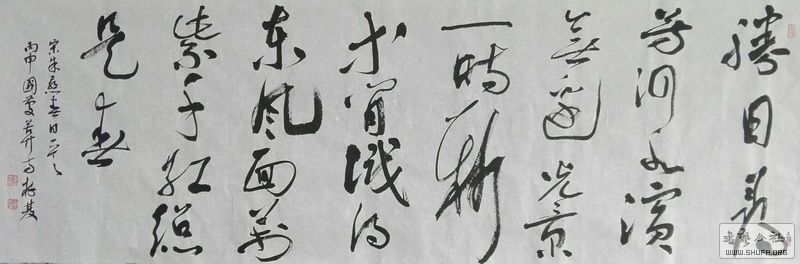 勝日尋
芳泗水濱
無邊光景
一時新
等閒識得
東風面萬
紫千紅總
是春
宋朱熹春日
丙申國慶
書藝公社
WWW.SHUFA.ORG